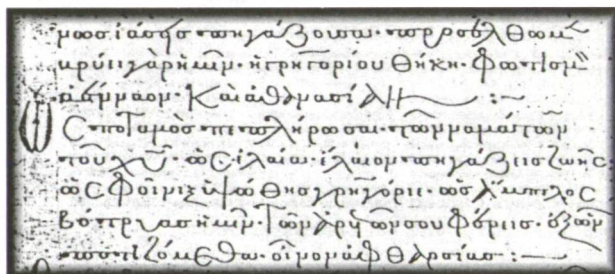 ἰάσεις πηγάζουσαν· προσέλθωμ
βρύει γὰρ ἡμῖν· ἡ γρηγορίου θήκη· φωτισμ
ἀένναον· Καὶ ἀθανασίαν :
Ὡς ποταμὸς πεπλήρωσαι· τῶν ναμάτων
τοῦ χῦ· ὡς ἐλαία ἔλαιον πηγάζεις ζωῆς
ὡς φοῖνιξ ὑψώθης γρηγόριε· ὡς ἄμπελος
βότρυας ἡμῖν· τῶν ἀρετῶν σου φέρεις· ἐξ ὧν
ποτιζόμεθα· οἶνον ἀφθαρσίας :